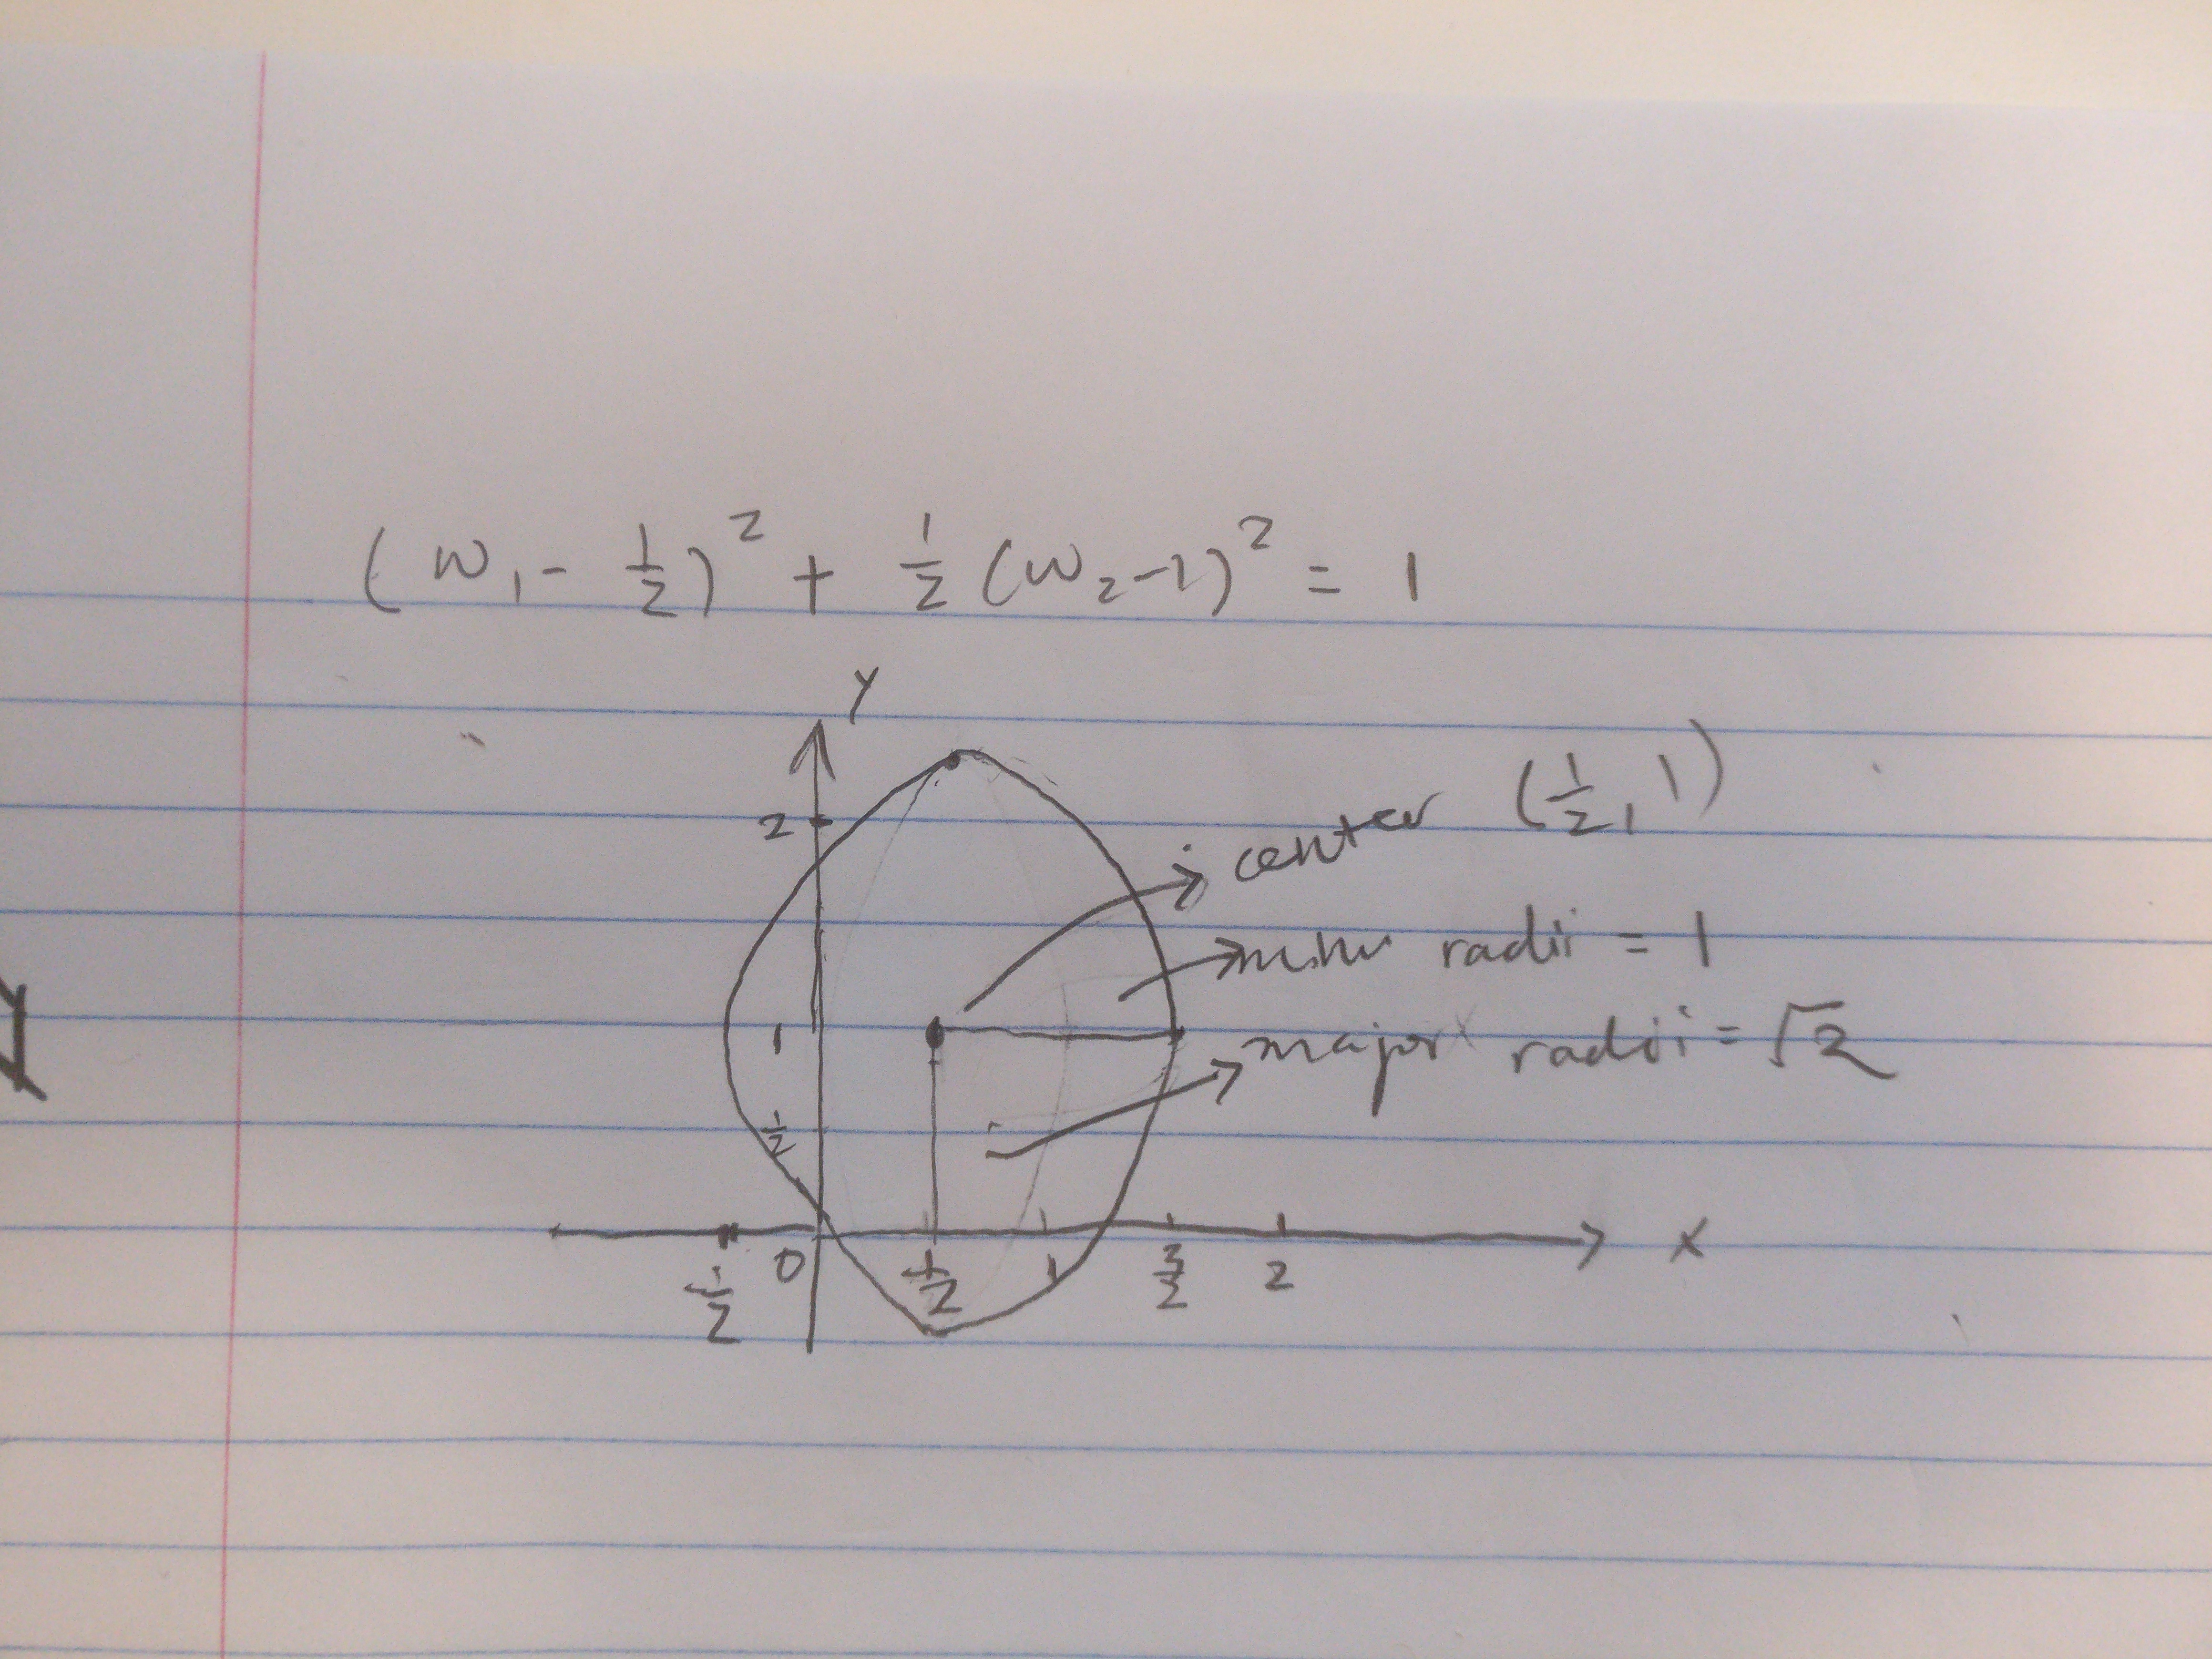 (w₁ - 1/2)² + 1/2 (w₂-1)² = 1
Y
2
center (1/2, 1)
minor radii = 1
1
major radii = √2
1/2
X
-1/2 0 1/2 1 3/2 2